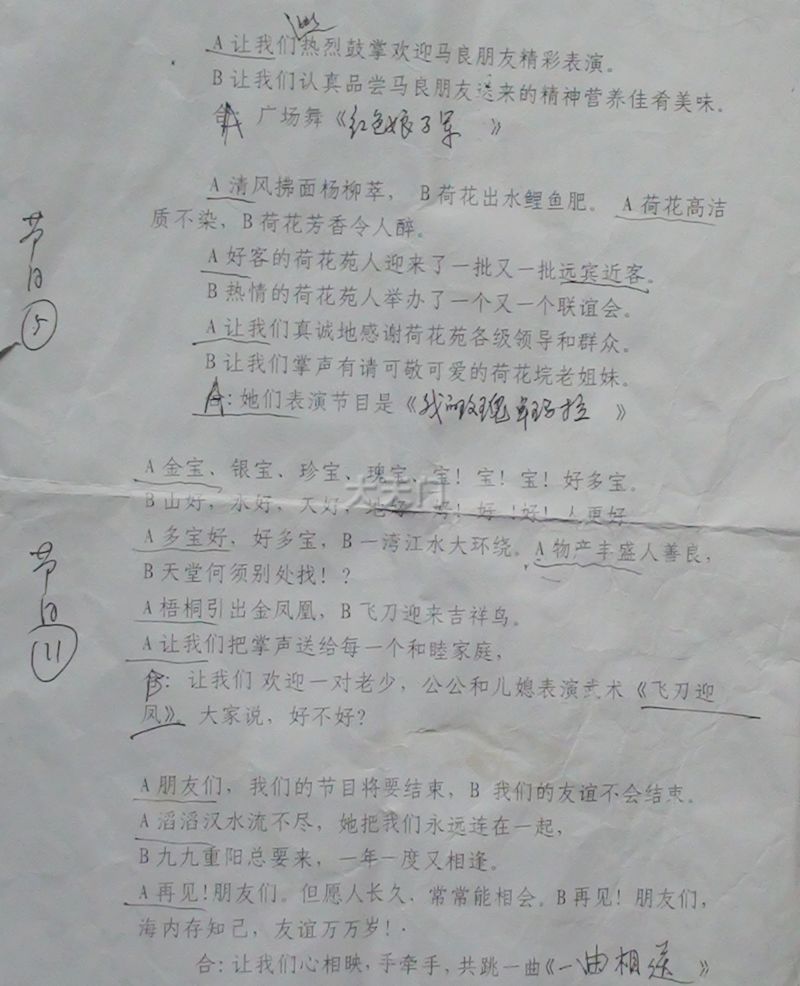 A让我们热烈鼓掌欢迎马良朋友精彩表演。
B让我们认真品尝马良朋友送来的精神营养佳肴美味。
A 广场舞《红色娘子军 》
A清风拂面杨柳萃， B荷花出水鲤鱼肥。 A荷花高洁
质不染，B荷花芳香令人醉。
A好客的荷花苑人迎来了一批又一批远宾近客。
B热情的荷花苑人举办了一个又一个联谊会。
A让我们真诚地感谢荷花苑各级领导和群众。
B让我们掌声有请可敬可爱的荷花垸老姐妹。
A：她们表演节目是《我的玫瑰卓玛拉 》
节目
⑤
A金宝、银宝、珍宝、瑰宝、宝！宝！宝！好多宝。
B山好，水好，天好，地好，好！好！好！人更好
A多宝好，好多宝，B一湾江水大环绕。A物产丰盛人善良，
B天堂何须别处找！？
A梧桐引出金凤凰，B飞刀迎来吉祥鸟。
A让我们把掌声送给每一个和睦家庭，
B：让我们 欢迎一对老少，公公和儿媳表演武术《飞刀迎
凤》。大家说，好不好？
节目
⑪
A朋友们，我们的节目将要结束，B 我们的友谊不会结束。
A滔滔汉水流不尽，她把我们永远连在一起，
B九九重阳总要来，一年一度又相逢。
A再见！朋友们。但愿人长久，常常能相会。B再见！朋友们，
海内存知己，友谊万万岁！
合：让我们心相映，手牵手，共跳一曲《一曲相送 》